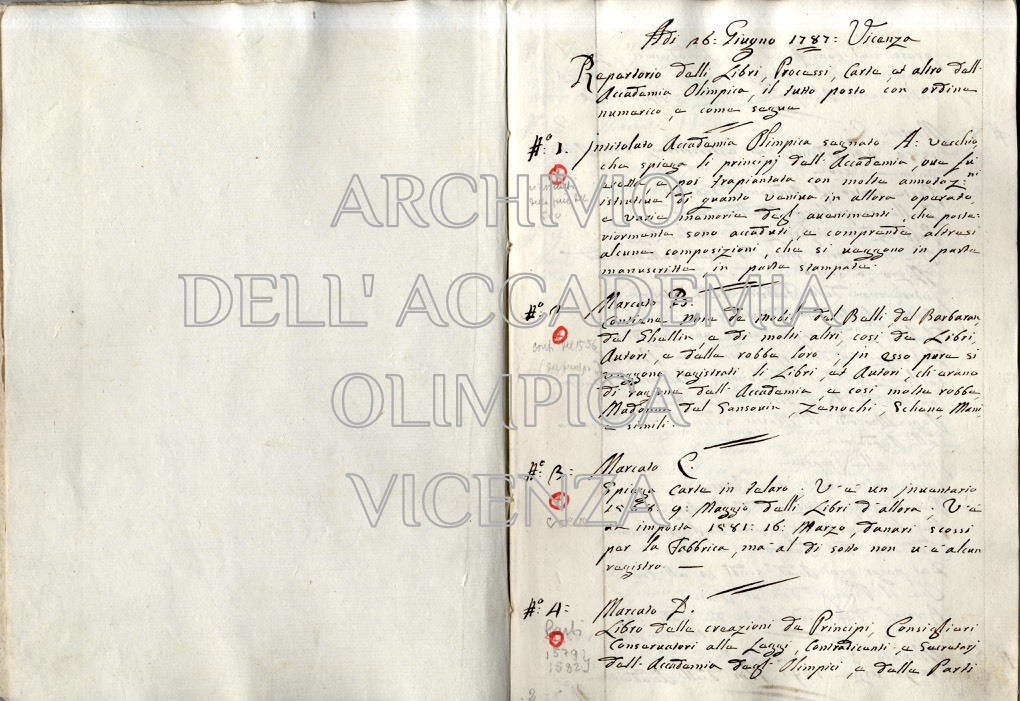 Adi 26: Giugno 1787: Vicenza
Repertorio delli Libri, Processi, Carte, et altro dell'
Accademia Olimpica, il tutto posto con ordine
numerico, e come segue
N.º 1. Intitolato Accademia Olimpica segnato A: vecchio,
che spiega li principj dell'Accademia, ove fu
eretta e poi trapiantata con molte annotaz:ni
istrutive di quanto veniva in allora operato,
e varie memorie degl' avenimenti, che poste-
riormente sono accaduti, e comprende altresi
alcune composizioni, che si veggono in parte
manuscritte in parte stampate.
N.º 2: Marcato B.
Contiene Note de mobili del Balli, del Barbaran,
dal Ghellin, e di molti altri, così de Libri,
Autori, e della robba loro: in esso pure si
veggono registrati li Libri, et Autori, ch'erano
di ragione dell'Accademia, e così molte robbe
Madonne del Sansovin, Zanochi, Schene, Mani
e simili.
N.º 3: Marcato C.
Spiega Carte in telaro. V'è un inventario
9: Maggio delli Libri d'allora; V'è
et imposta 1581: 16: Marzo, danari scossi
per la Fabbrica, ma al di sotto non v'è alcun
registro.
N.º 4: Marcato D.
Libro delle creazioni de Principi, Consiglieri
Conservatori alle Leggi, Contradicenti, e Secretarj
dell'Accademia degl' Olimpici, e delle Parti
Parti
1579
1582
2
ARCHIVIO
DELL' ACCADEMIA
OLIMPICA
VICENZA